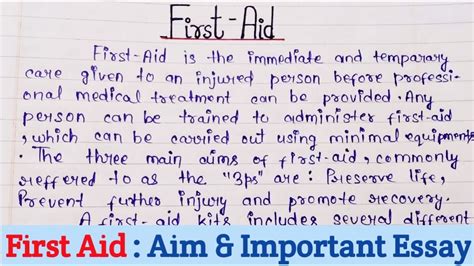 First-Aid
First-Aid is the immediate and temparary
care given to an injured person before professi-
onal medical treatment can be provided. Any
person can be trained to administer first-aid
, which can be carried out using minimal equipments
. The three main aims of first-aid, commonly
reffered to as the "3ps" are: Preserve life,
Prevent further injury and promote recovery.
A first-aid kits includes several different
First Aid : Aim & Important Essay